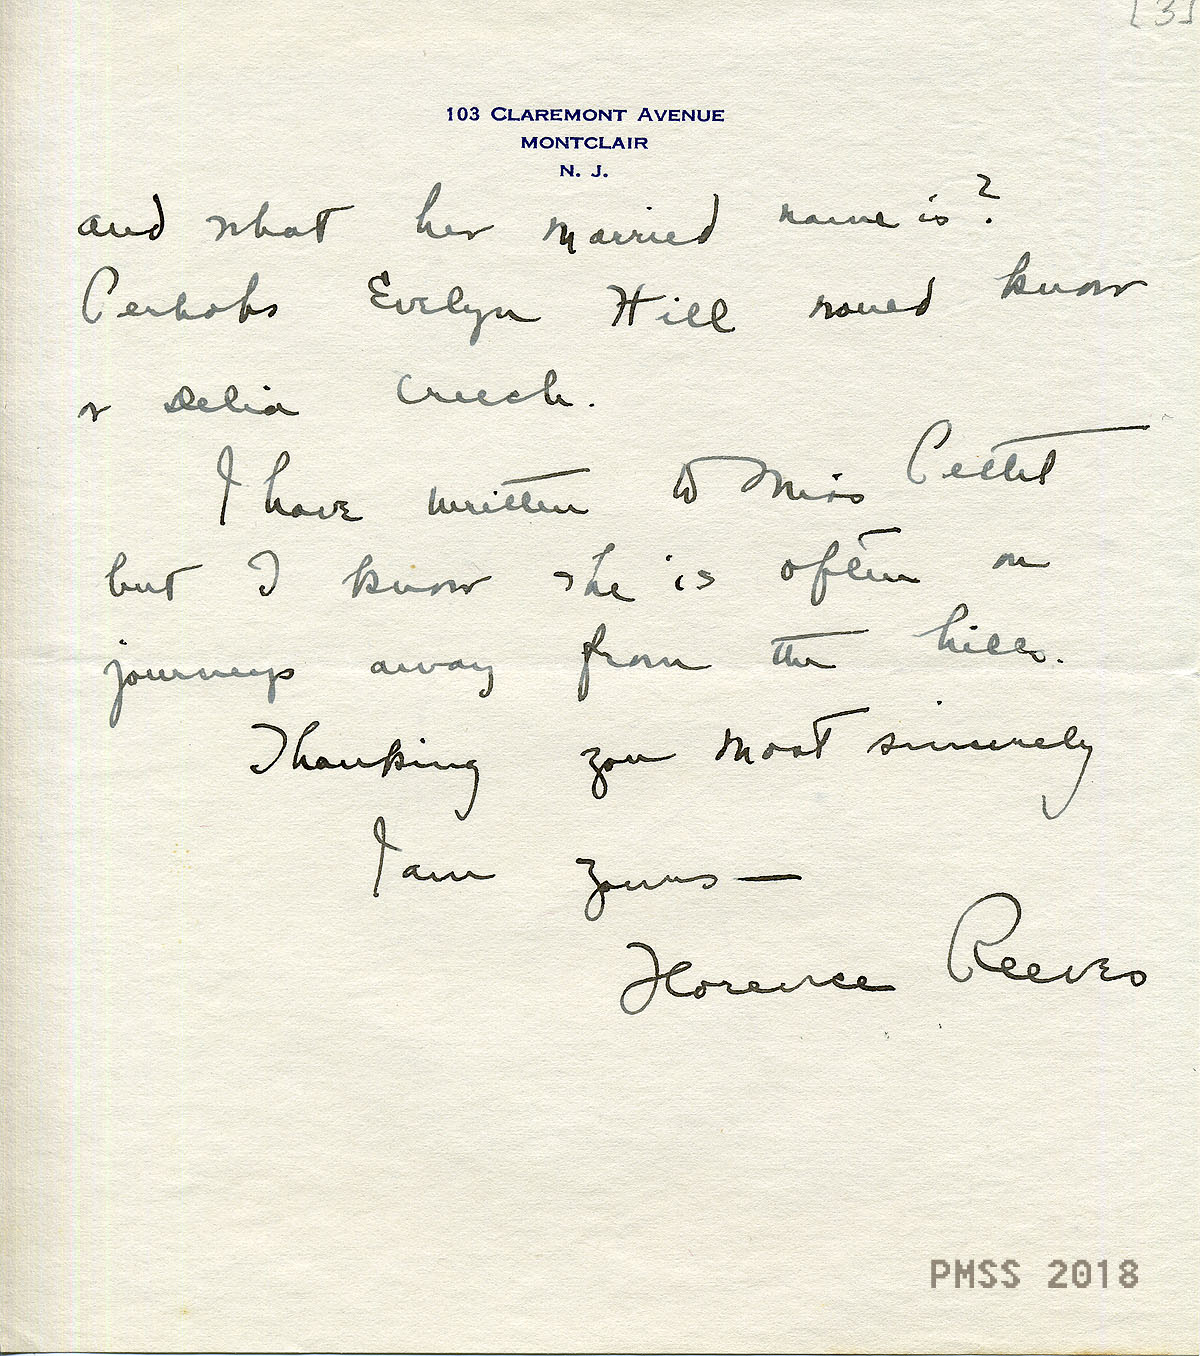 [3]
103 CLAREMONT AVENUE
MONTCLAIR
N. J.
and what her married name is?
Perhaps Evelyn Hill would know
or Delia Creech.
I have written to Miss Pettit
but I know she is often on
journeys away from the hills.
Thanking you most sincerely
I am yours —
Florence Reeves
PMSS 2018